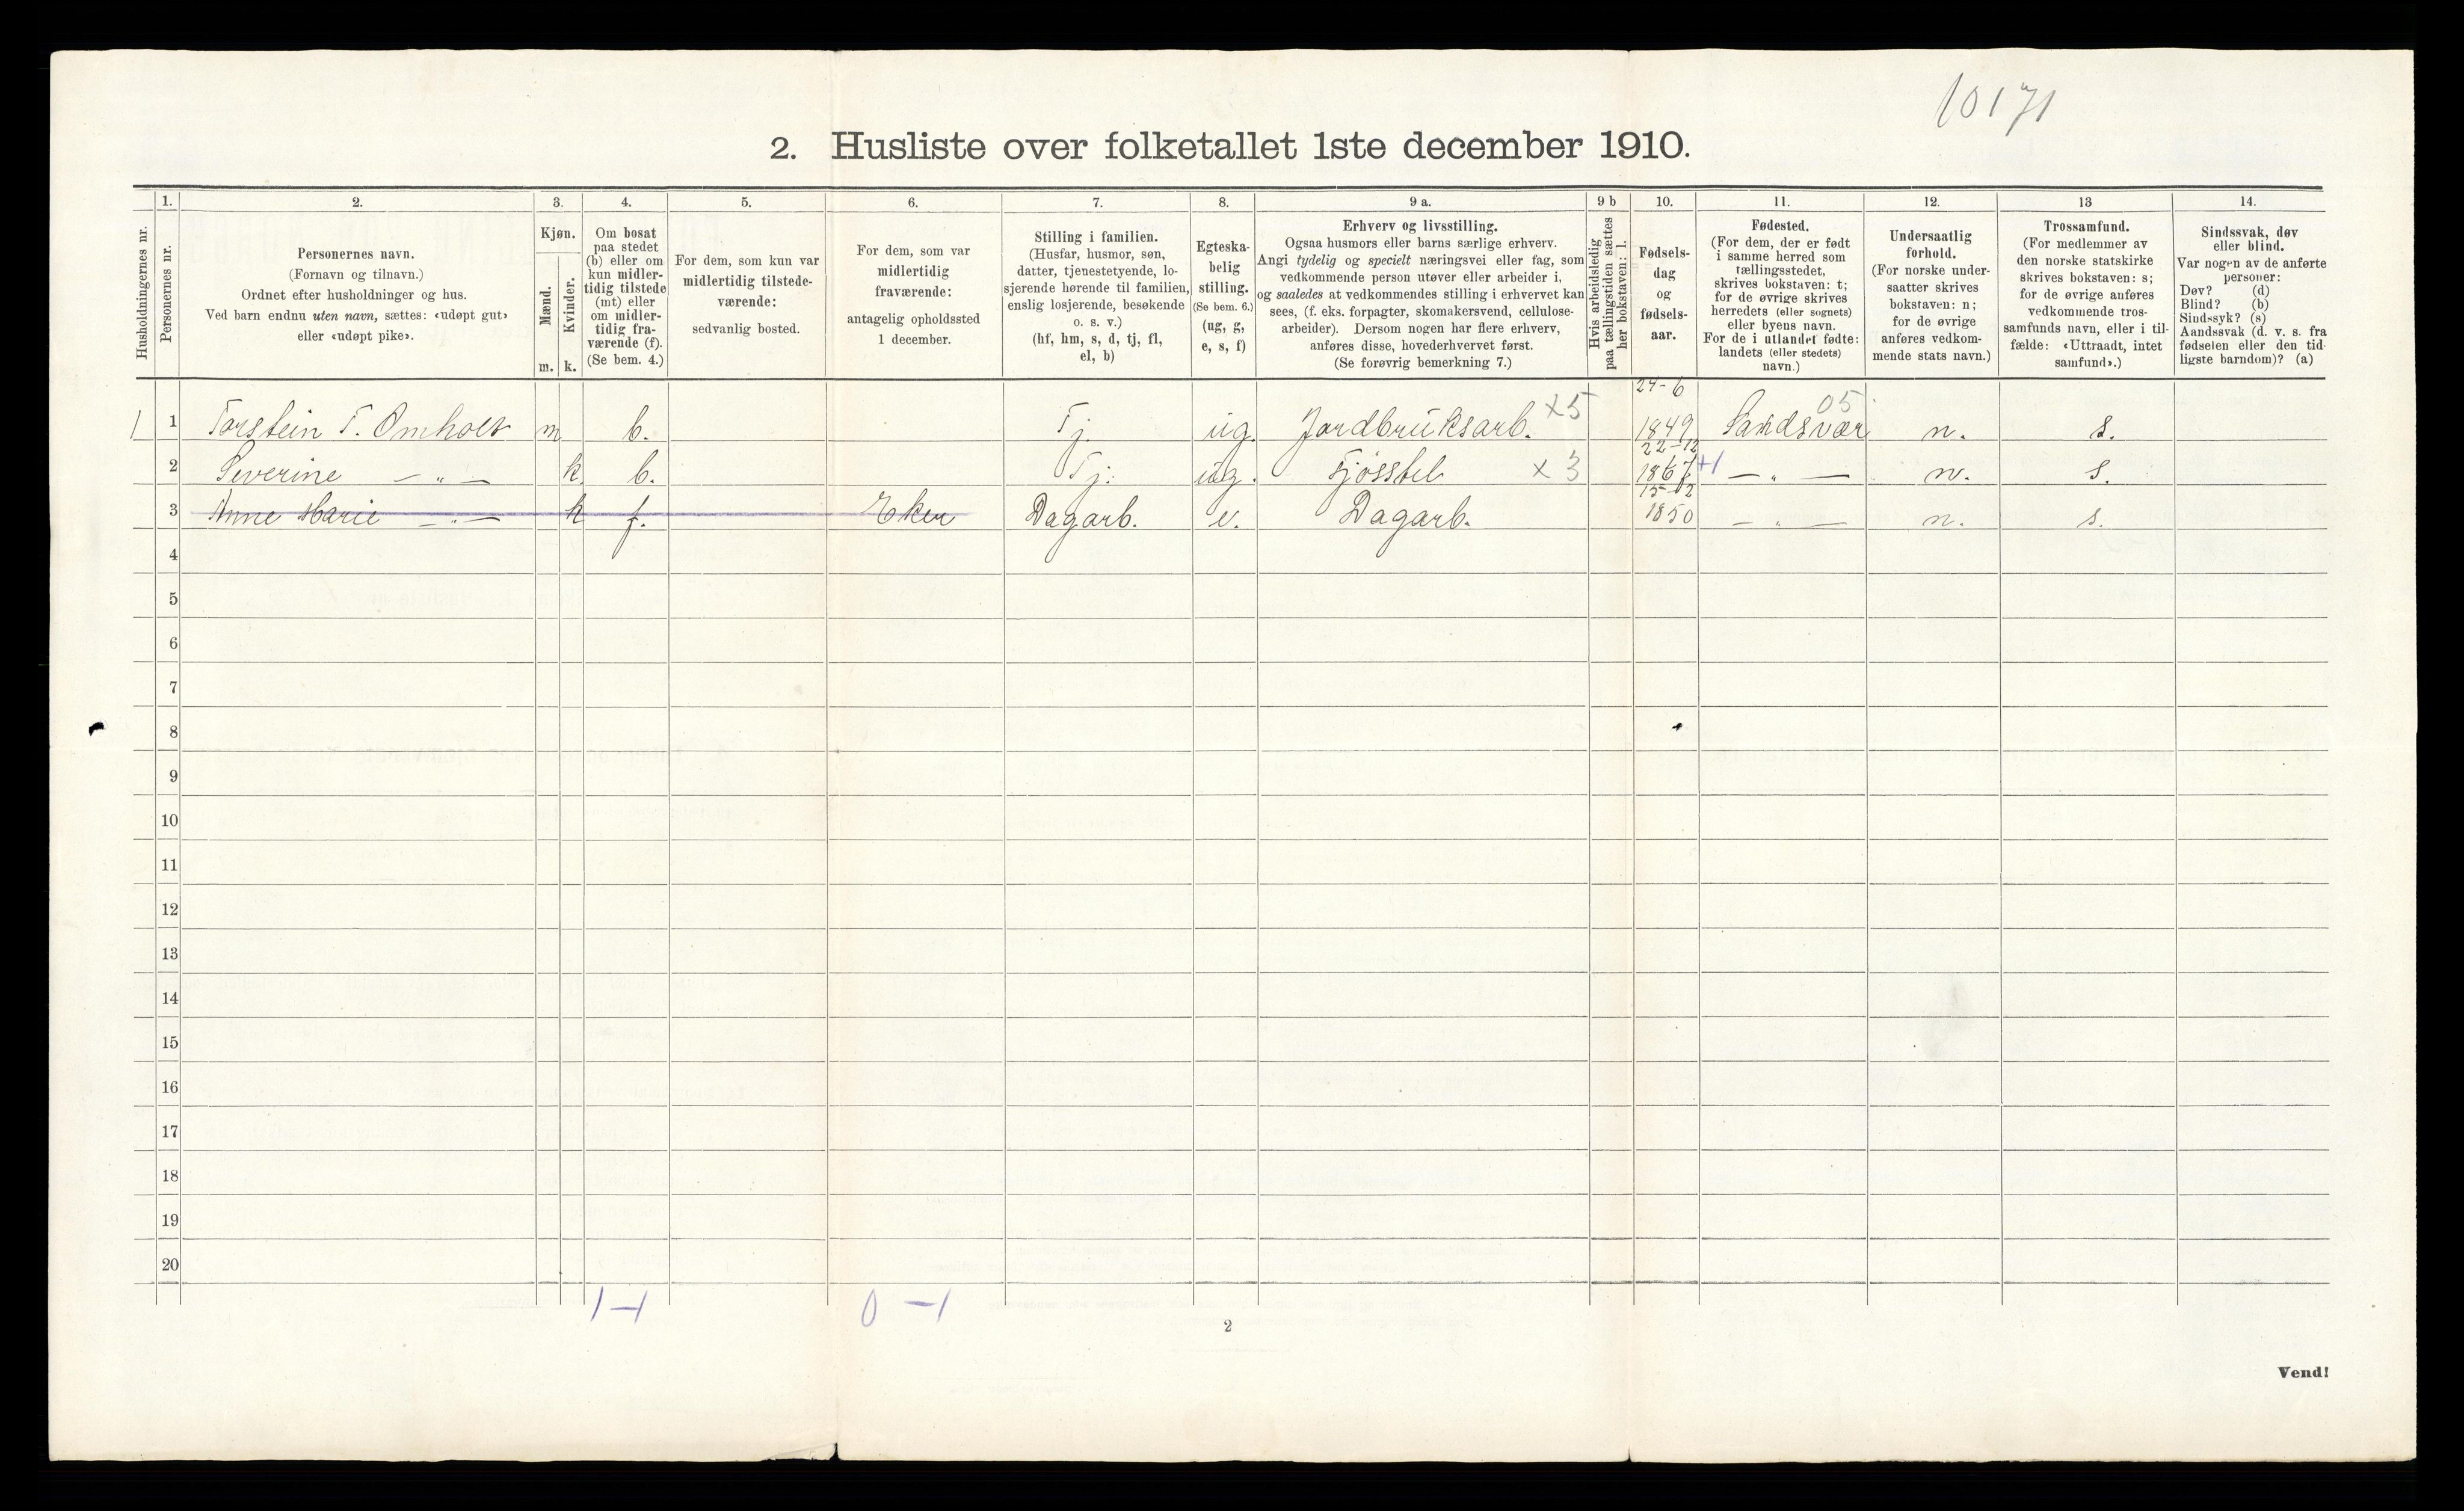 10171
2. Husliste over folketallet 1ste december 1910.
Husholdningernes nr.
1.
Personernes nr.
2.
Personernes navn.
(Fornavn og tilnavn.)
Ordnet efter husholdninger og hus.
Ved barn endnu uten navn, sættes: «udøpt gut»
eller «udøpt pike».
3.
Kjøn.
Mænd.
Kvinder.
m. k.
4.
Om bosat
paa stedet
(b) eller om
kun midler-
tidig tilstede
(mt) eller
om midler-
tidig fra-
værende (f).
(Se bem. 4.)
5.
For dem, som kun var
midlertidig tilstede-
værende:
sedvanlig bosted.
6.
For dem, som var
midlertidig
fraværende:
antagelig opholdssted
1 december.
7.
Stilling i familien.
(Husfar, husmor, søn,
datter, tjenestetyende, lo-
sjerende hørende til familien,
enslig losjerende, besøkende
o. s. v.)
(hf, hm, s, d, tj, fl,
el, b)
8.
Egteska-
belig
stilling.
(Se bem. 6.)
(ug, g,
e, s, f)
9 a.
Erhverv og livsstilling.
Ogsaa husmors eller barns særlige erhverv.
Angi tydelig og specielt næringsvei eller fag, som
vedkommende person utøver eller arbeider i,
og saaledes at vedkommendes stilling i erhvervet kan
sees, (f. eks. forpagter, skomakersvend, cellulose-
arbeider). Dersom nogen har flere erhverv,
anføres disse, hovederhvervet først.
(Se forøvrig bemerkning 7.)
9 b
Hvis arbeidsledig
paa tællingstiden sættes
her bokstaven: l.
10.
Fødsels-
dag
og
fødsels-
aar.
11.
Fødested.
(For dem, der er født
i samme herred som
tællingsstedet,
skrives bokstaven: t;
for de øvrige skrives
herredets (eller sognets)
eller byens navn.
For de i utlandet fødte:
landets (eller stedets)
navn.)
12.
Undersaatlig
forhold.
(For norske under-
saatter skrives
bokstaven: n;
for de øvrige
anføres vedkom-
mende stats navn.)
13
Trossamfund.
(For medlemmer av
den norske statskirke
skrives bokstaven: s;
for de øvrige anføres
vedkommende tros-
samfunds navn, eller i til-
fælde: «Uttraadt, intet
samfund».)
14.
Sindssvak, døv
eller blind.
Var nogen av de anførte
personer:
Døv? (d)
Blind? (b)
Sindssyk? (s)
Aandssvak (d. v. s. fra
fødselen eller den tid-
ligste barndom)? (a)
24-6
1 1 Torstein T. Omholt m b. Tj. ug. Jordbruksarb. x5 1849 Sandsvær 05 n. s.
22-12
2 Severine — „ — k b. Tj. ug. Fjösstel x 3 1867 +1 — „ — n. s.
15-12
3 Anne Marie — „ — k f. Eker Dagarb. e. Dagarb. 1850 — „ — n. s.
4
5
6
7
8
9
10
11
12
13
14
15
16
17
18
19
20
1-1 0-1
2
Vend!